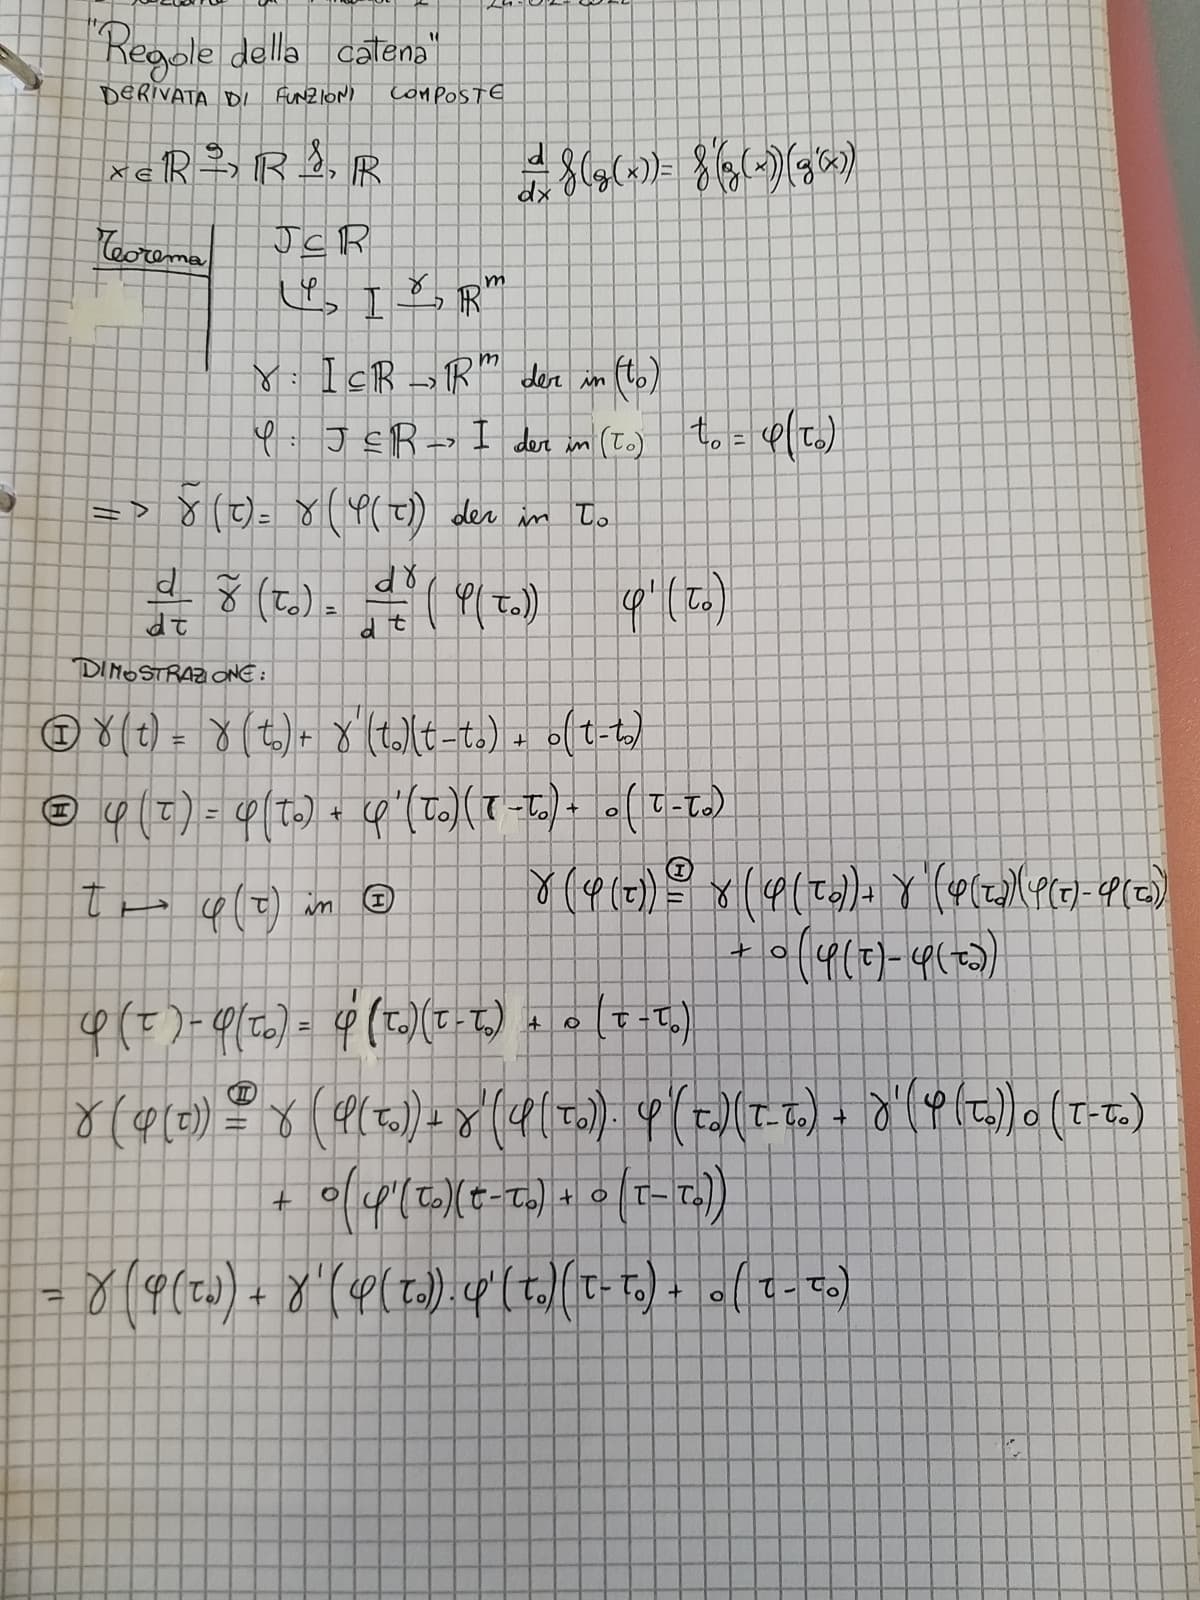 "Regole della catena"
DERIVATA DI FUNZIONI COMPOSTE
x ∈ ℝ →^g ℝ →^f ℝ    d/dx f(g(x)) = f'(g(x))(g'(x))
Teorema    J ⊆ ℝ
↳^φ I →^γ ℝ^m
γ : I ⊆ ℝ → ℝ^m der in (t₀)
φ : J ⊆ ℝ → I der in (τ₀)    t₀ = φ(τ₀)
=> γ̃(τ) = γ(φ(τ)) der in τ₀
d/dτ γ̃(τ₀) = dγ/dt (φ(τ₀))    φ'(τ₀)
DIMOSTRAZIONE:
Ⓘ γ(t) = γ(t₀) + γ'(t₀)(t-t₀) + o(t-t₀)
Ⓘ︎Ⓘ φ(τ) = φ(τ₀) + φ'(τ₀)(τ-τ₀) + o(τ-τ₀)
t ⟼ φ(τ) in Ⓘ    γ(φ(τ)) =^Ⓘ γ(φ(τ₀)) + γ'(φ(τ₀))(φ(τ)-φ(τ₀))
+ o(φ(τ)-φ(τ₀))
φ(τ)-φ(τ₀) = φ'(τ₀)(τ-τ₀) + o(τ-τ₀)
γ(φ(τ)) =^(II) γ(φ(τ₀)) + γ'(φ(τ₀))·φ'(τ₀)(τ-τ₀) + γ'(φ(τ₀))o(τ-τ₀)
+ o(φ'(τ₀)(τ-τ₀) + o(τ-τ₀))
= γ(φ(τ₀)) + γ'(φ(τ₀))·φ'(τ₀)(τ-τ₀) + o(τ-τ₀)